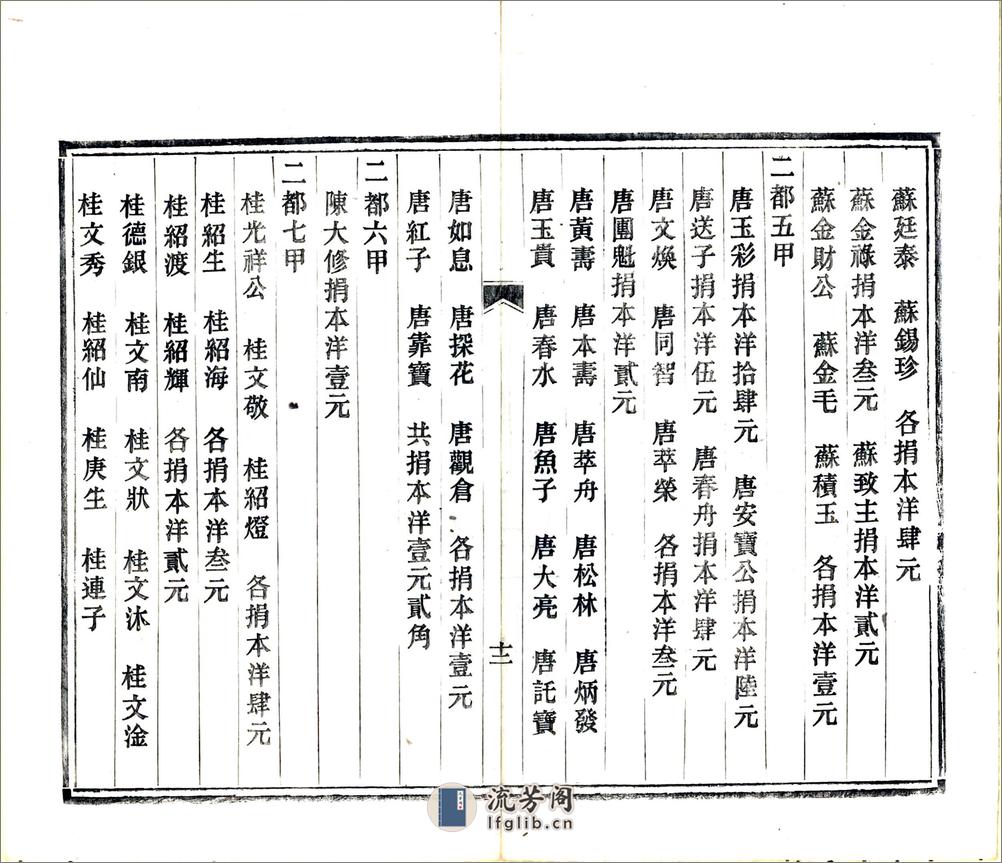 蘇廷泰　蘇錫珍　各捐本洋肆元
蘇金祿捐本洋叁元　蘇致主捐本洋貳元
蘇金財公　蘇金毛　蘇積玉　各捐本洋壹元
二都五甲
唐玉彩捐本洋拾肆元　唐安寶公捐本洋陸元
唐送子捐本洋伍元　唐春舟捐本洋肆元
唐文煥　唐同智　唐萃榮　各捐本洋叁元
唐團魁捐本洋貳元
唐黃壽　唐本壽　唐萃舟　唐松林　唐炳發
唐玉貴　唐春水　唐魚子　唐大亮　唐託寶
十二
唐如息　唐探花　唐觀倉　各捐本洋壹元
唐紅子　唐靠寶　共捐本洋壹元貳角
二都六甲
陳大修捐本洋壹元
二都七甲
桂光祥公　桂文敬　桂紹燈　各捐本洋肆元
桂紹生　桂紹海　各捐本洋叁元
桂紹渡　桂紹輝　各捐本洋貳元
桂德銀　桂文南　桂文狀　桂文沐　桂文淦
桂文秀　桂紹仙　桂庚生　桂連子
流芳阁
lfglib.cn